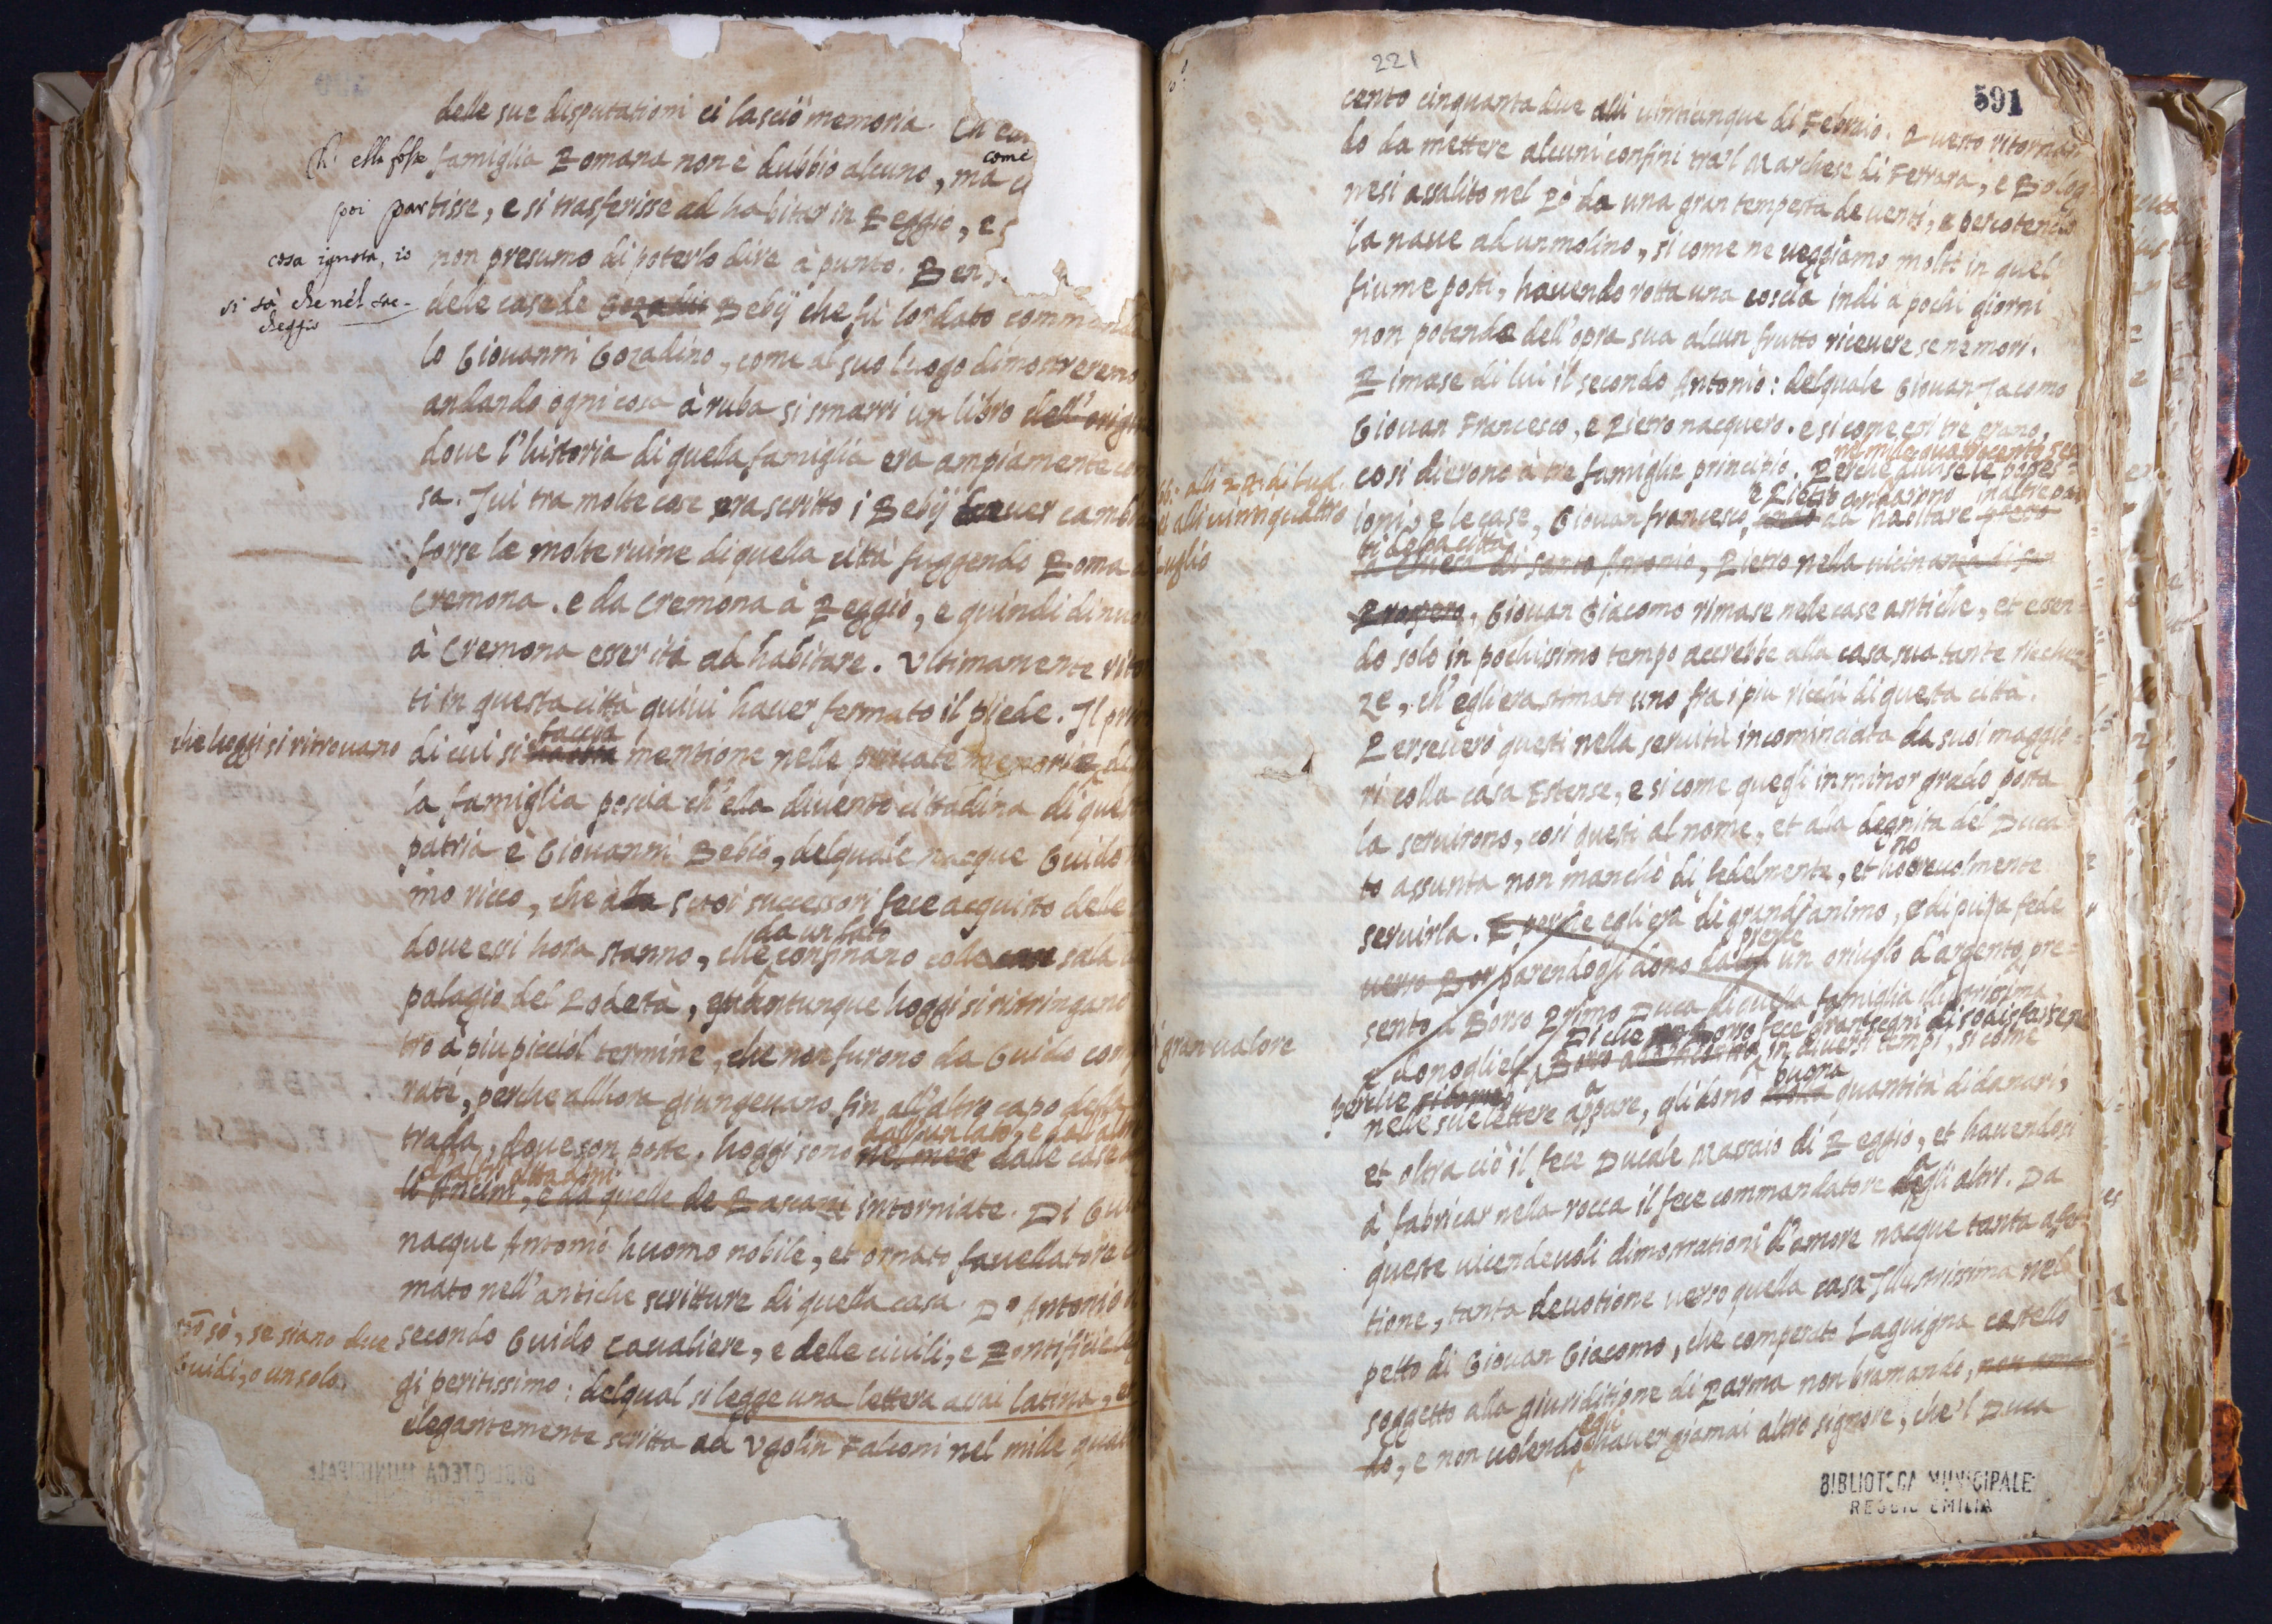 delle sue disputationi ci lasciò memoria.
Ch' ella fosse famiglia Romana non è dubbio alcuno, ma come
poi partisse, e si trasferisse ad habitar in Reggio, e
cosa ignota, io non presumo di poterlo dire à punto. Ben
si sà che nel sac-
cheggio
delle case de Bebij che fù lordato
lo Giovanni Gozadino, come al suo luogo dimostreremo
andando ogni cosa à ruba si smarrì un libro dell'
dove l'historia di quela famiglia era ampiamente
sa. Ivi tra molte cose era scritto i Bebij haver
forse le molte ruine di quella città fuggendo Roma
Cremona. e da Cremona à Reggio, e quindi di
à Cremona esser ità ad habitare. Ultimamente
ti in questa città quivi haver fermato il piede. Il
che hoggi si ritrovano
di cui si faccia mentione nelle private memorie
la famiglia poscia ch'ella diventò cittadina di
patria è Giovanni Bebio, delquale nacque Guido
mo ricco, che suoi successori fece acquisto delle
dove essi hora stanno, che da un lato confinano colla sala
palagio del Podestà, quantunque hoggi si ristringano
tro à piu picciol termine, che non furono da Guido
rate, perche allhora giungevano fin all'altro capo della
trada, dove son poste, hoggi sono dall'un lato, e dall'
nel mezo dalle case
li Ancini, e da quelle de intorniate. Di
nacque Antonio huomo nobile, et ornato favellatore
mato nell'antiche scritture di quella casa. D' Antonio
nō sò, se siano due
Guidi, o un solo.
secondo Guido cavaliere, e delle civili, e Pontificie
gi peritissimo: delqual si legge una lettera assai latina,
elegantemente scritta ad Ugolin Falconi nel mille
221
591
cento cinquanta due alli vinticinque di Febraio. Questo ritornan
do da mettere alcuni confini tra'l Marchese di Ferrara, e Bolog
nesi assalito nel Pò da una gran tempesta de venti, e percotendo
la nave ad un molino, si come ne veggiamo molti in quel
fiume posti, havendo rotta una coscia indi à pochi giorni
non potendo dell'opra sua alcun frutto ricevere se ne morì.
Rimase di lui il secondo Antonio: delquale Giovan Jacomo
Giovan Francesco, e Pietro nacquero. e si come essi tre erano,
così dierono à tre famiglie principio. Perche divise le posses=
alli vintiquattro
Luglio
ioni, e le case, Giovan francesco, e Pietro andarono ad habitare in altre par
ti della città
la chiesa di Santo Antonio, Pietro nella vicinanza di San
Prospero, Giovan Giacomo rimase nelle case antiche, et essen=
do solo in pochissimo tempo accrebbe alla casa sua tante riches
ze, ch'egli era stimato uno fra i piu ricchi di questa città.
Perseverò questi nella servitù incominciata da suoi maggio=
ri colla casa Estense, e si come quegli in minor grado posta
la servirono, così questi al nome, et ala degnita del Duca=
to assunta non manchò di fedelmente, et honorevolmente
servirla. E perche egli era di grand'animo, e di pura fede
verso Bor parendogli dono un oriuolo d'argento, pre=
sentò à Borso Primo Duca di quella famiglia illustrissima,
e donoglielo,
Di che Borso fece gran segni di sodisfattione
gran valore
perche in diversi tempi, si come
nelle sue lettere appare, gli donò buona quantità di danari,
et oltra ciò il fece Ducale Massaio di Reggio, et havendosi
à fabricar nella rocca il fece commandatore degli altri. Da
queste vicendevoli dimostrationi d'amore nacque tanta affet=
tione, tanta devotione verso quella casa Illustrissima nel
petto di Giovan Giacomo, che comperato Laguigna castello
soggetto alla giuriditione di Parma non bramando, non
do, e non volendo egli haver giamai altro signore, che'l Duca
BIBLIOTECA MUNICIPALE
REGGIO EMILIA